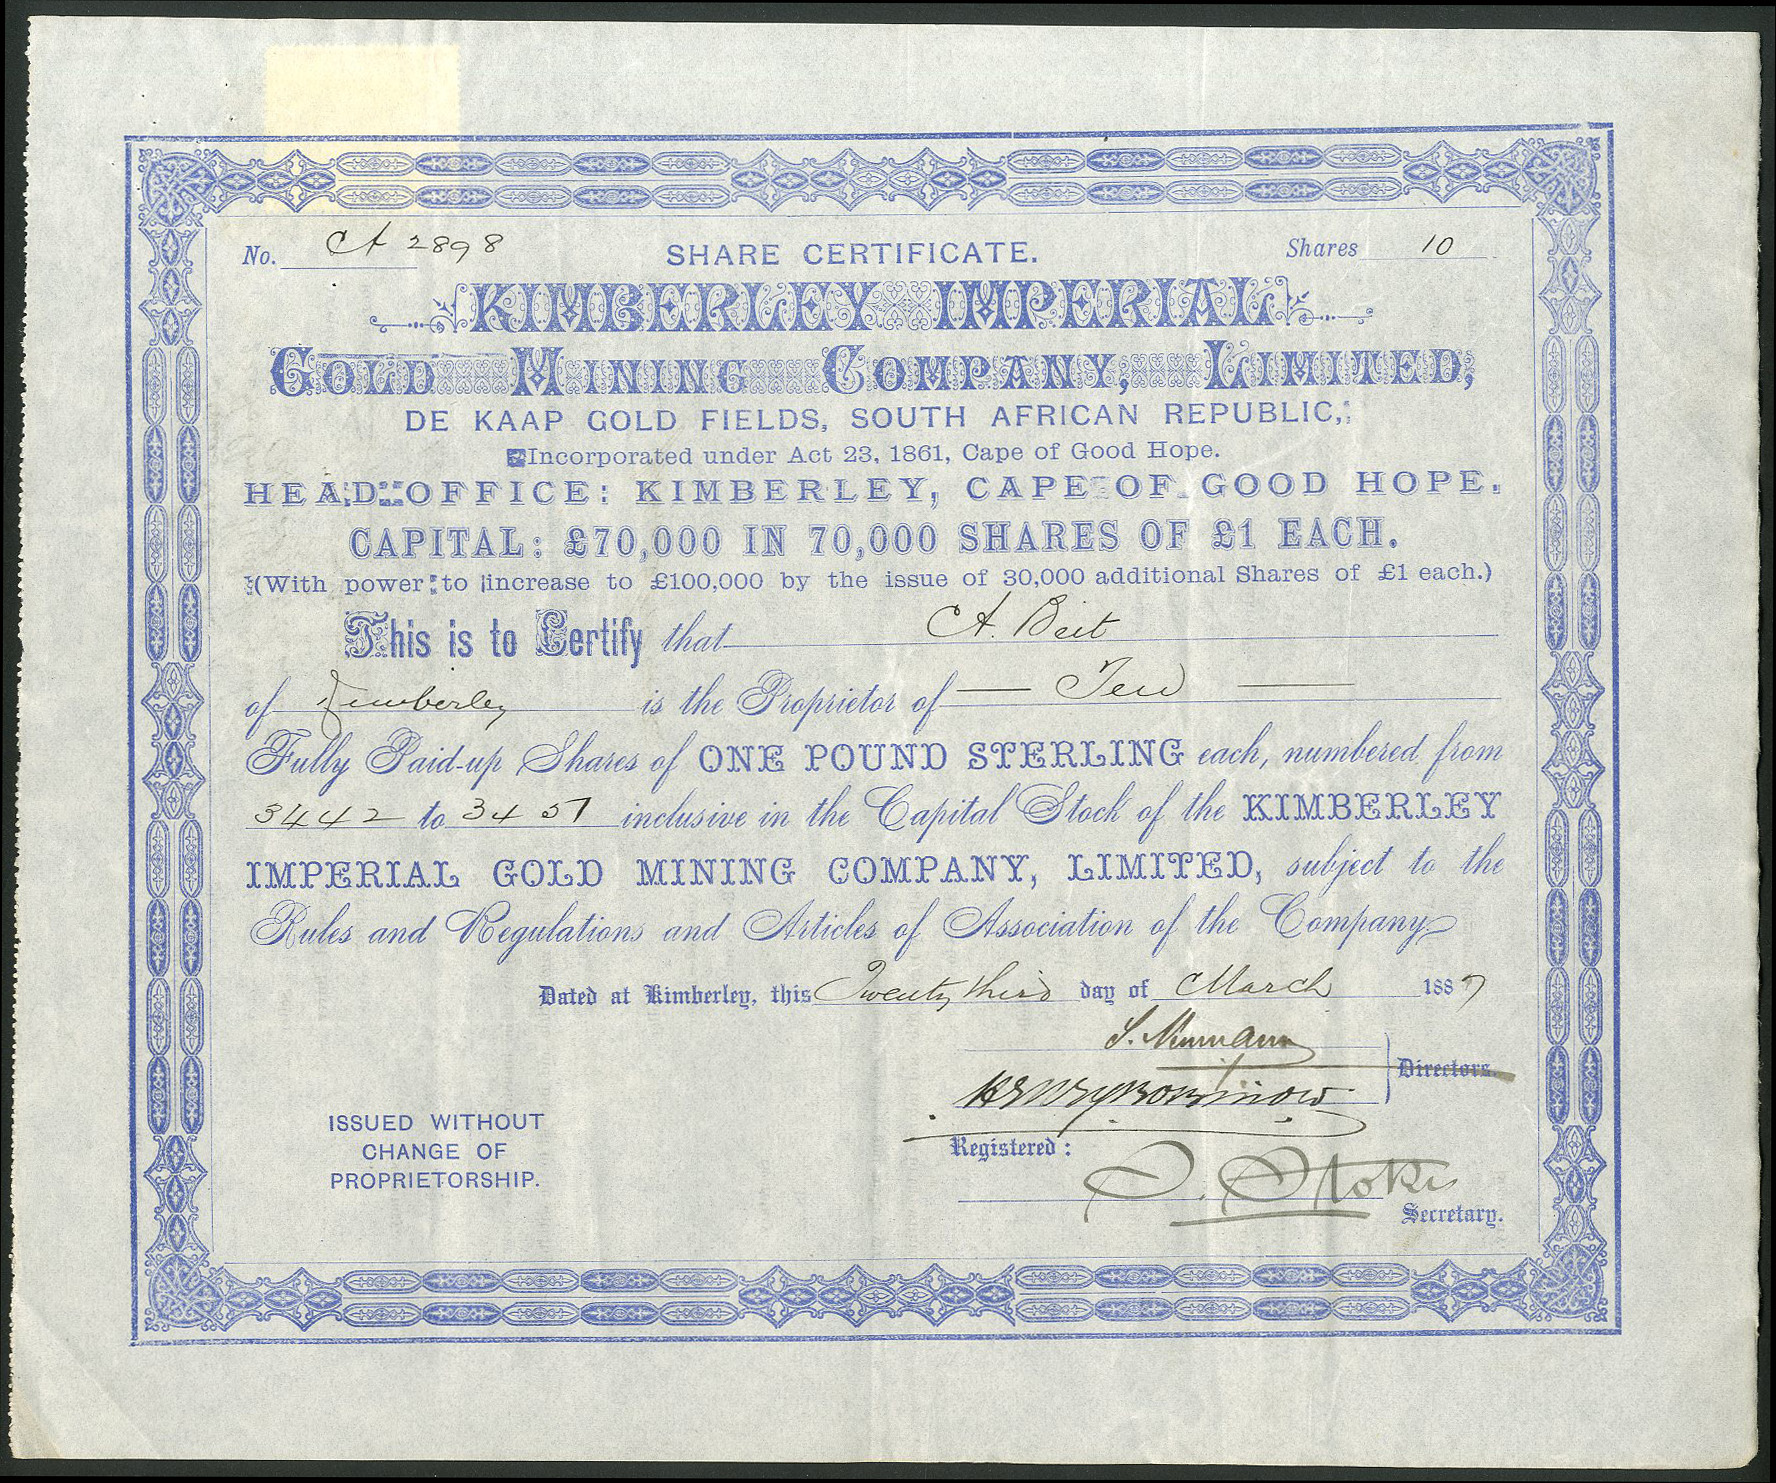 No. A 2898 SHARE CERTIFICATE. Shares 10
KIMBERLEY IMPERIAL
GOLD MINING COMPANY, LIMITED,
DE KAAP GOLD FIELDS, SOUTH AFRICAN REPUBLIC,
Incorporated under Act 23, 1861, Cape of Good Hope.
HEAD OFFICE: KIMBERLEY, CAPE OF GOOD HOPE.
CAPITAL: £70,000 IN 70,000 SHARES OF £1 EACH.
(With power to increase to £100,000 by the issue of 30,000 additional Shares of £1 each.)
This is to Certify that A. Beit
of Kimberley is the Proprietor of Ten
Fully Paid-up Shares of ONE POUND STERLING each, numbered from
3442 to 3451 inclusive in the Capital Stock of the KIMBERLEY
IMPERIAL GOLD MINING COMPANY, LIMITED, subject to the
Rules and Regulations and Articles of Association of the Company
Dated at Kimberley, this Twenty third day of March 1887
S. Neumann
Directors.
ISSUED WITHOUT
CHANGE OF
PROPRIETORSHIP.
Registered:
Secretary.